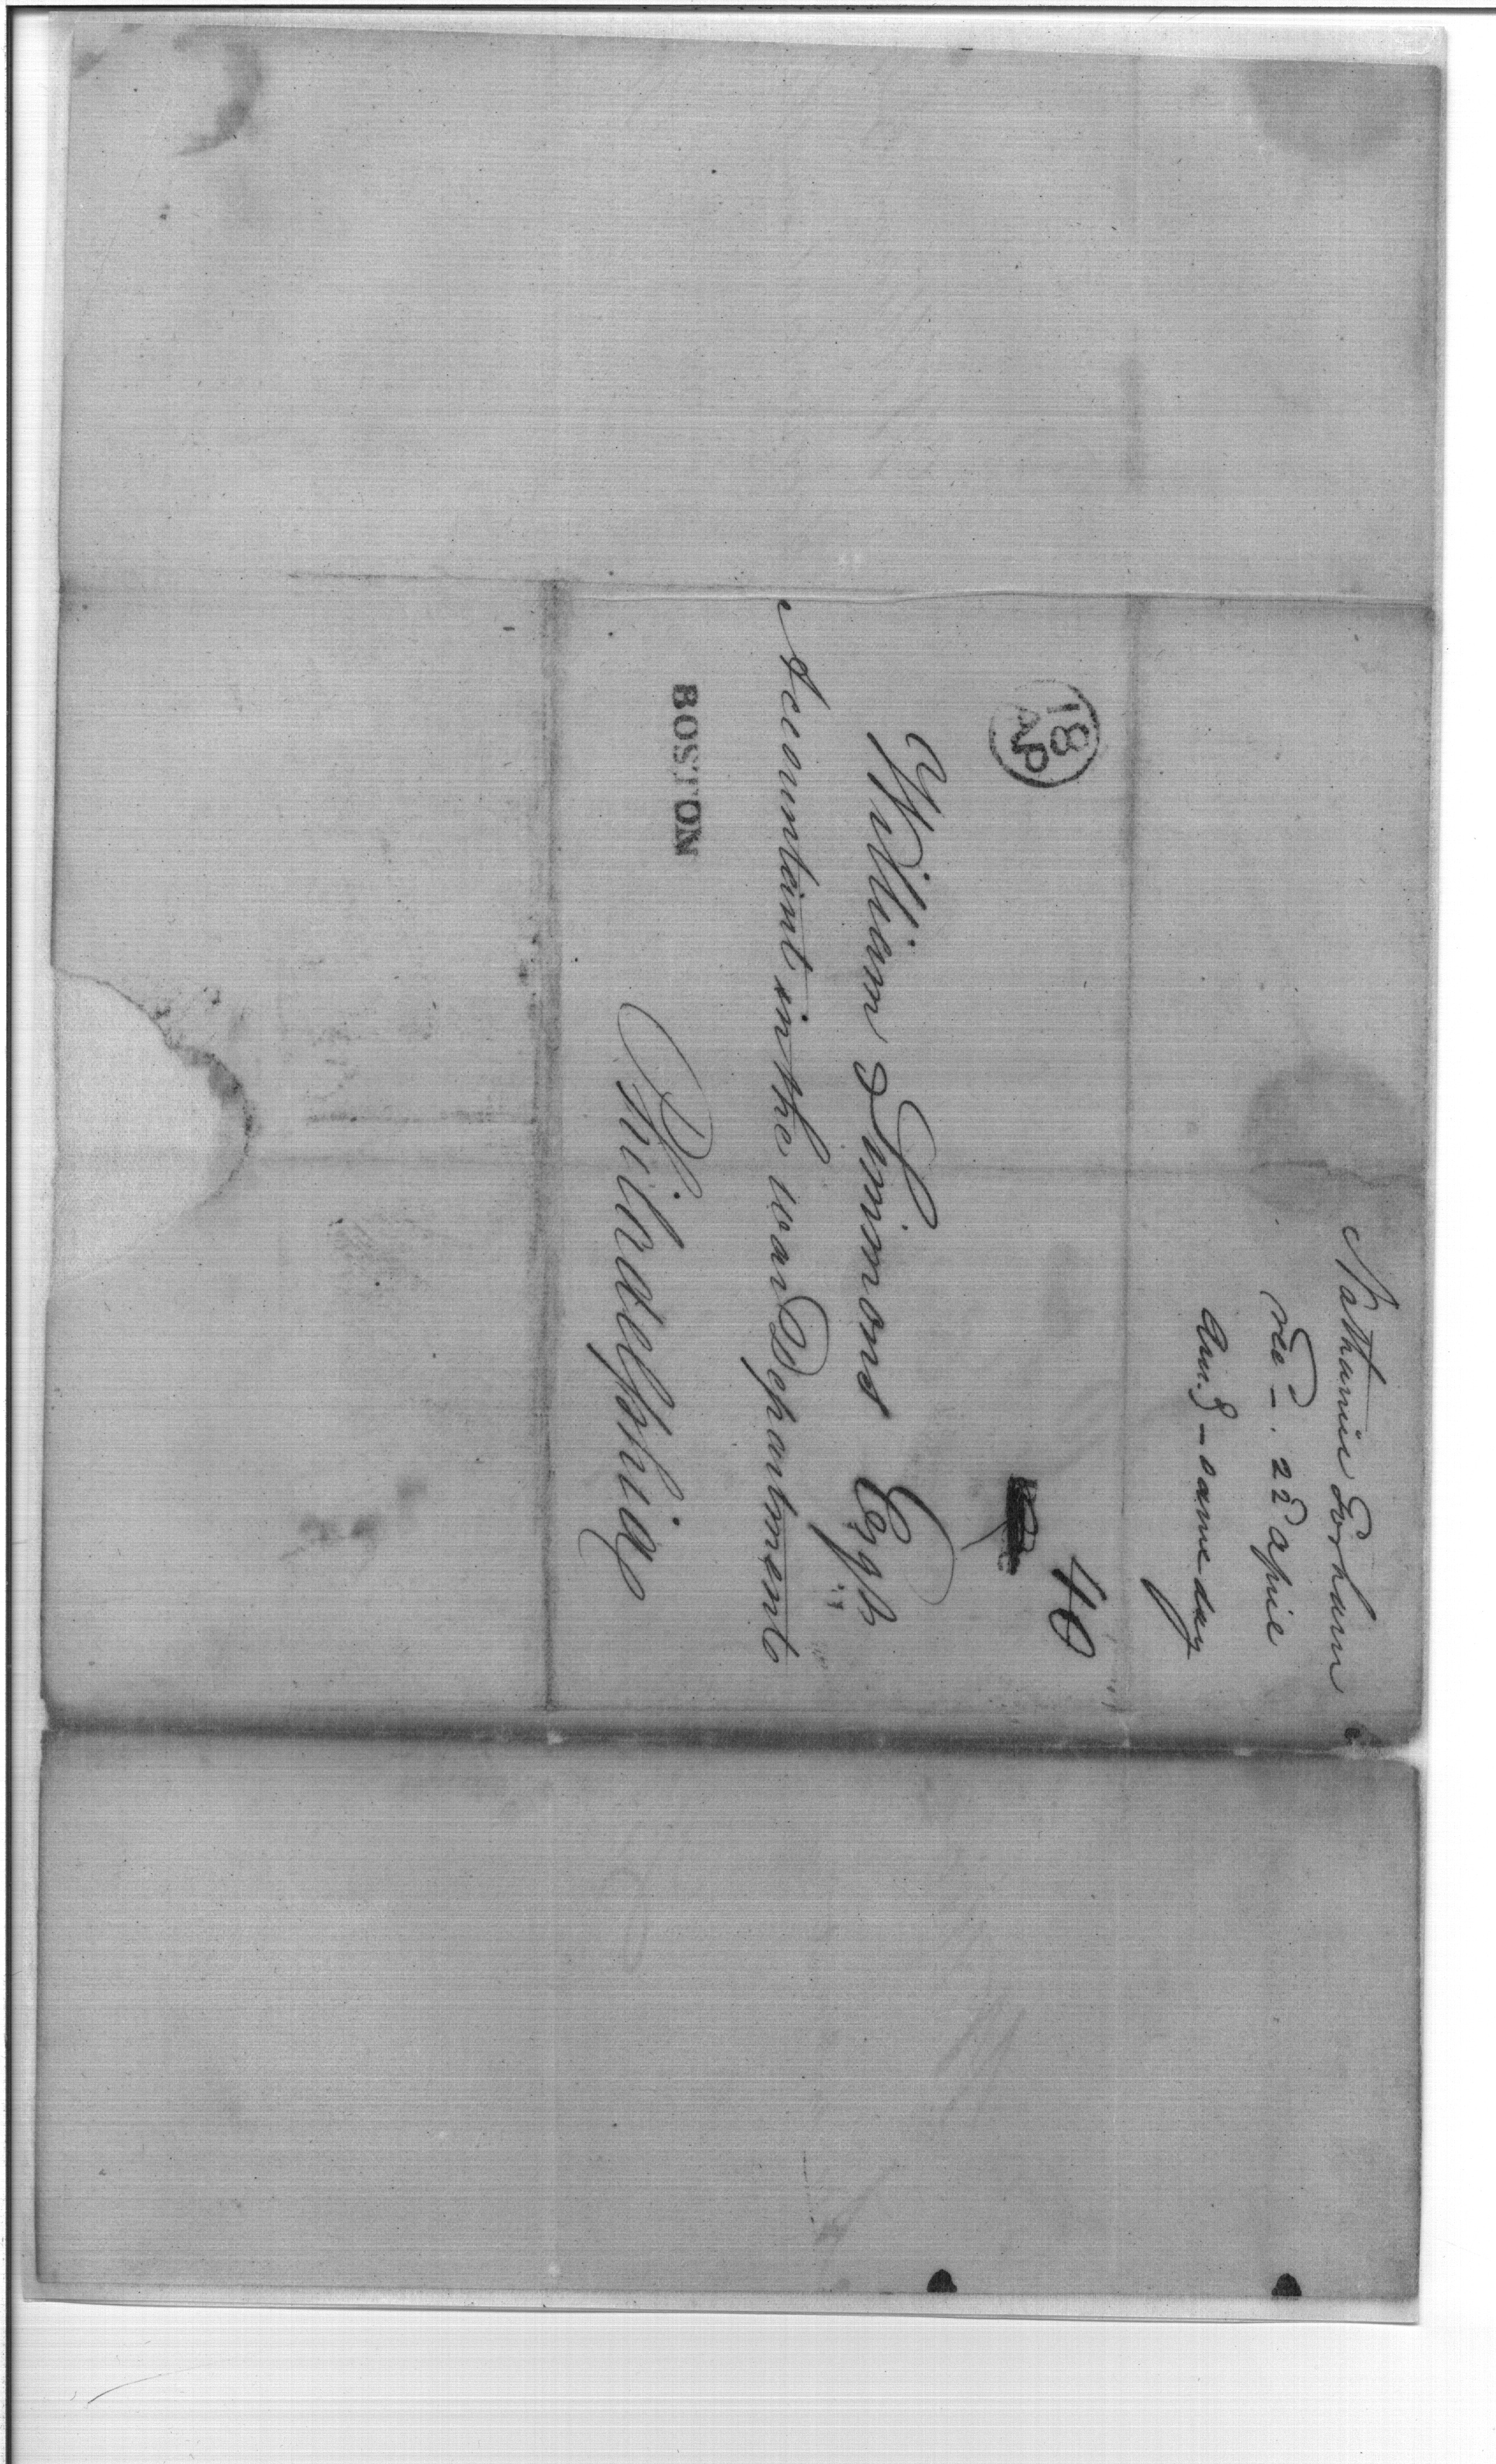 Nathaniel Gorham
recd. 22d April
Ansd. same day
40
18
AP
William Simmons Esqr.
Accountant in the war Department
BOSTON
Philadelphia